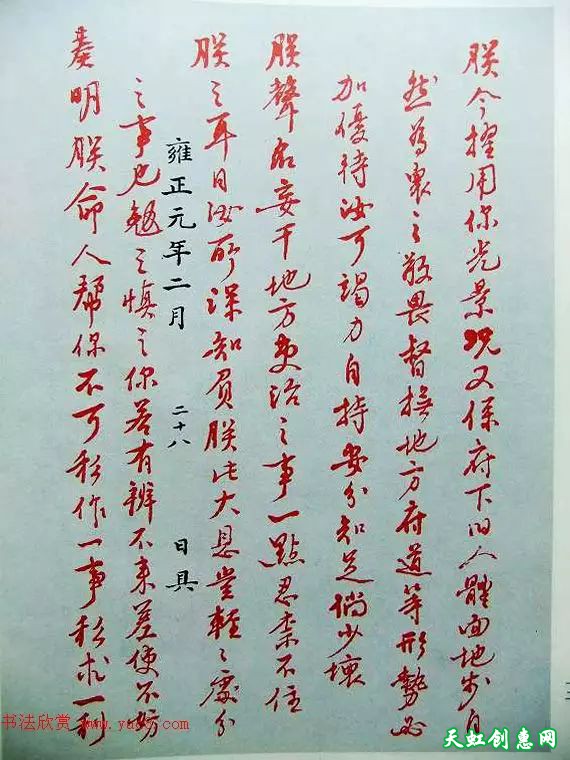 朕今擢用你光景況又係府下旧人體面地步自
然為衆之敬畏督撫地方府道等形勢必
加優待汝可竭力自持安分知足倘少壞
朕聲名妄干地方吏治之事一點忍柰不住
朕之耳目汝所深知負朕此大恩豈輕之處分
雍正元年二月 二十八 日具
之事也勉之慎之你若有辦不來差使不妨
奏明朕命人幫你不可私作一事私求一利
书法欣赏 www.yac8.com
天虹创惠网